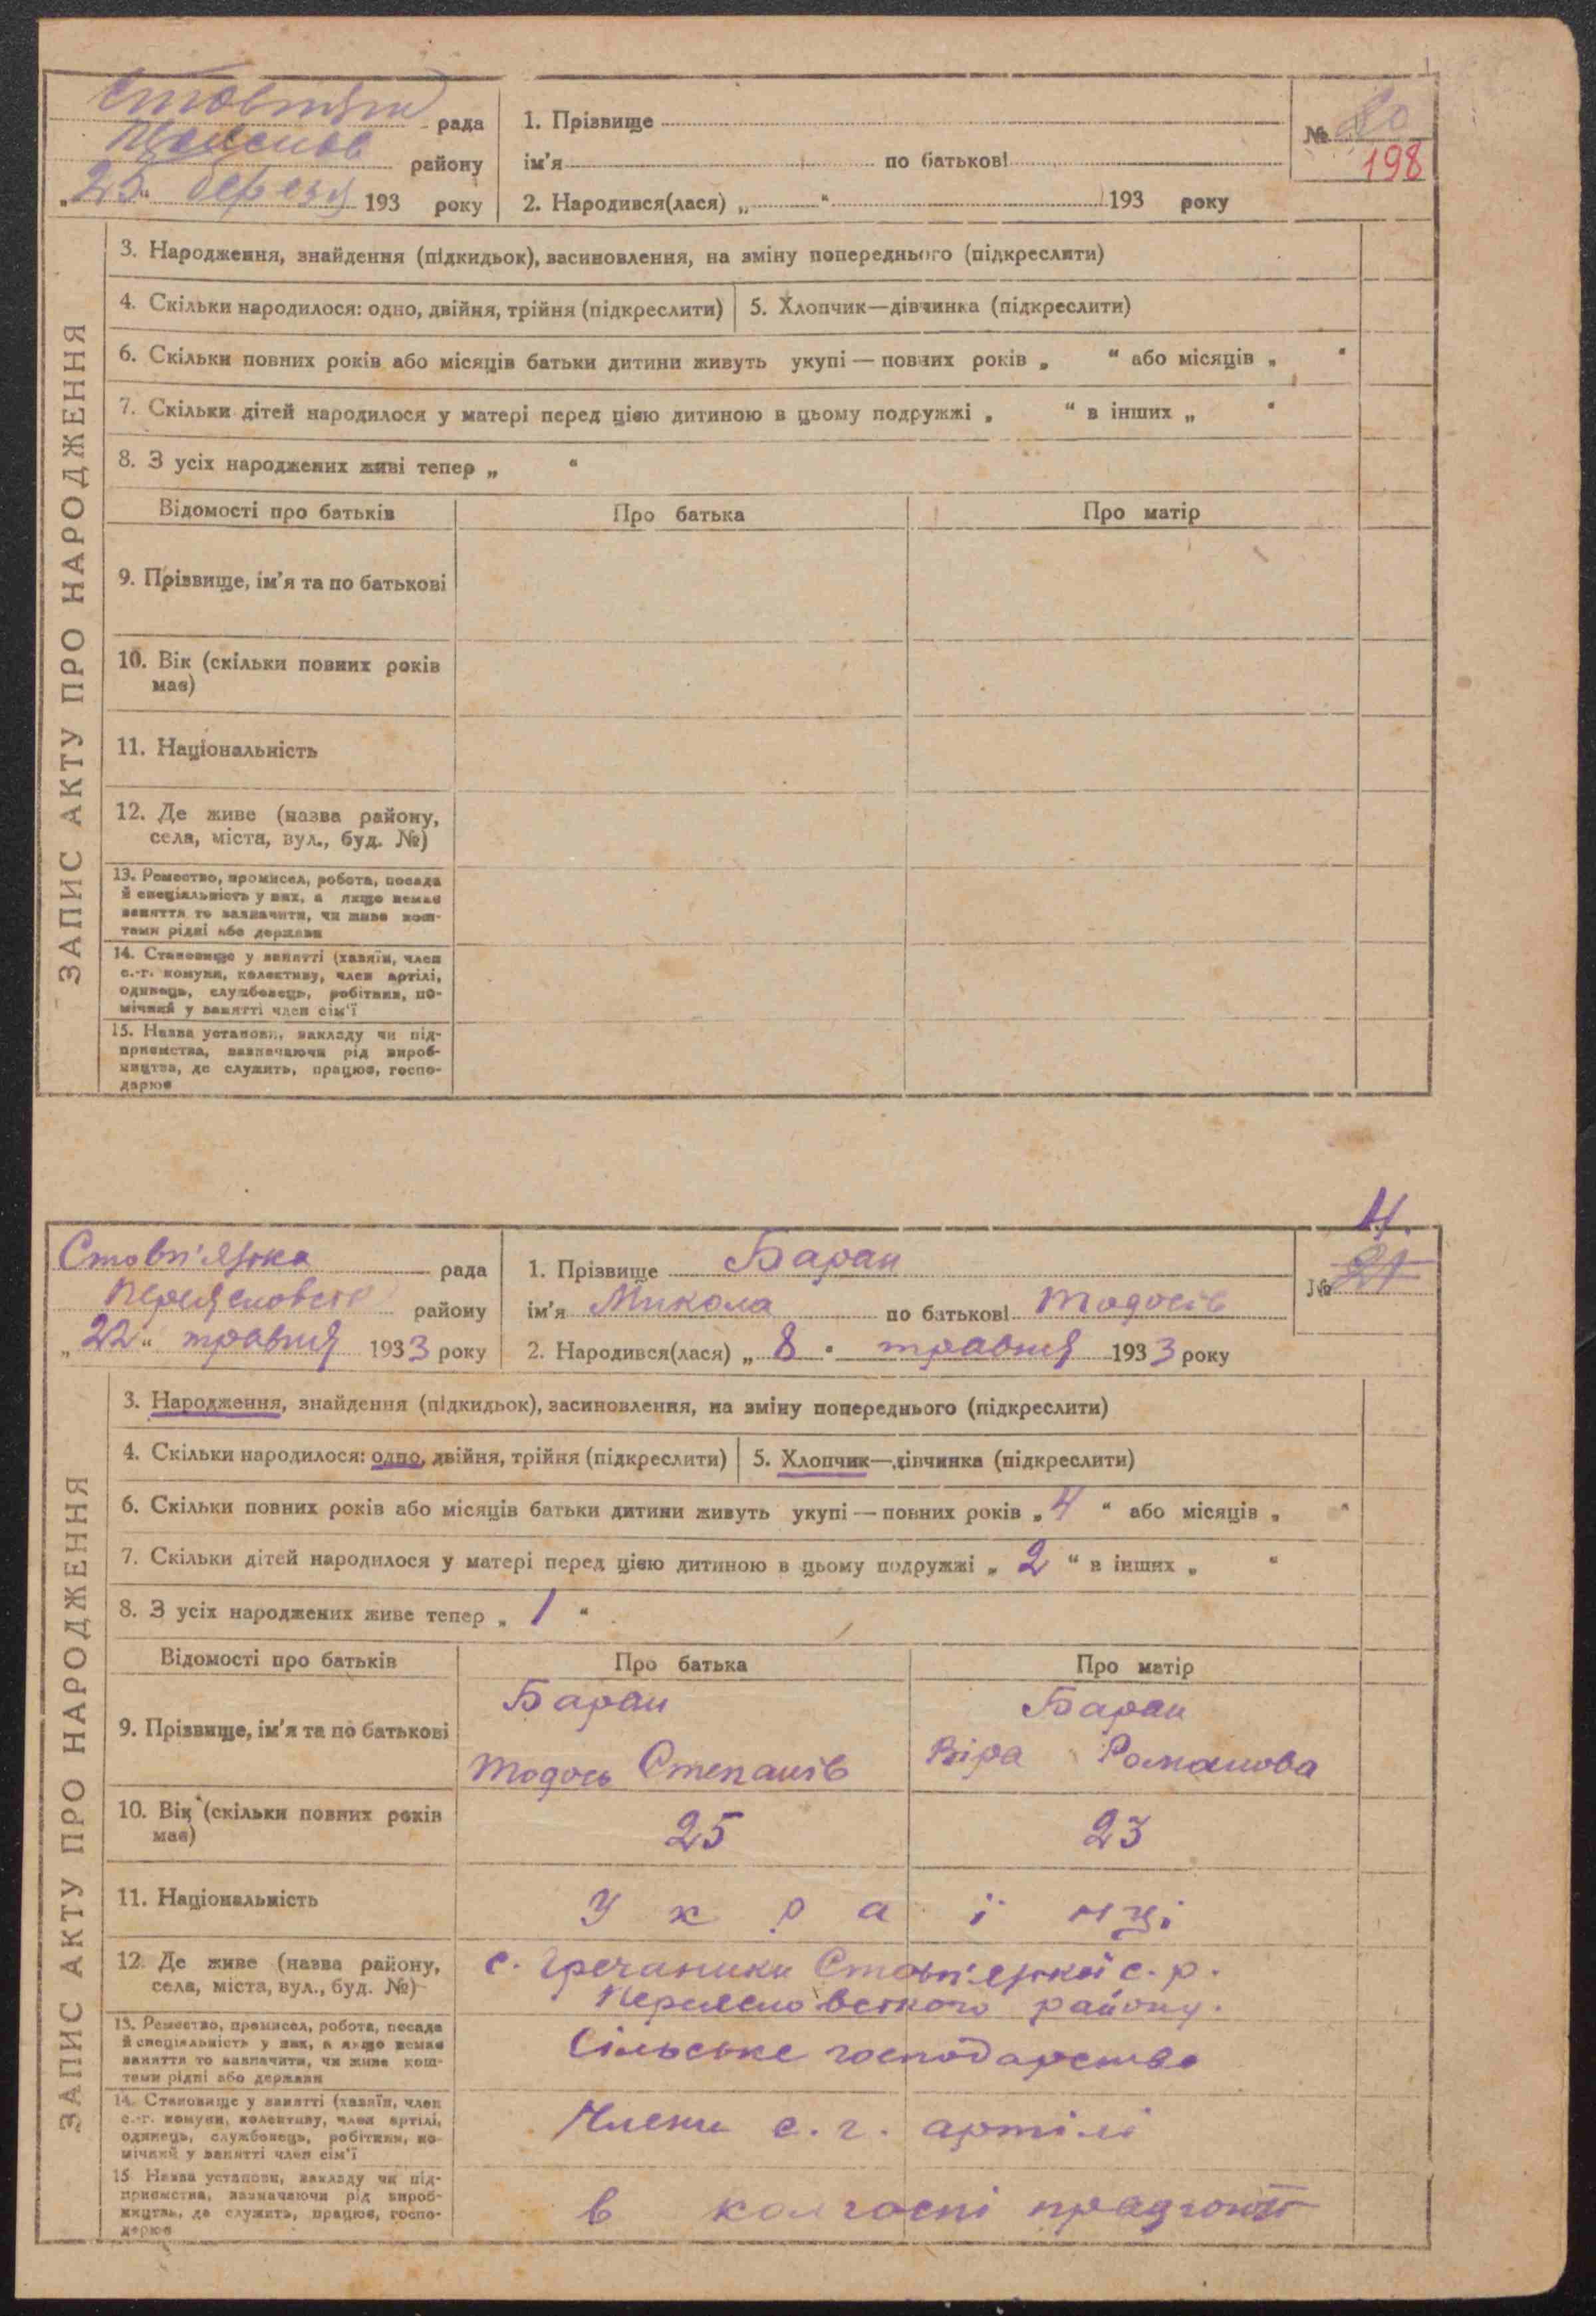 Стовпяги рада
району
„25“ березня 193 року
1. Прізвище
ім’я по батькові
2. Народився(лася) „ “ 193 року
№ 20
198
ЗАПИС АКТУ ПРО НАРОДЖЕННЯ
3. Народження, знайдення (підкидьок), васиновлення, на зміну попереднього (підкреслити)
4. Скільки народилося: одно, двійня, трійня (підкреслити)
5. Хлопчик—дівчинка (підкреслити)
6. Скільки повних років або місяців батьки дитини живуть укупі — повних років „ “ або місяців „ “
7. Скільки дітей народилося у матері перед цією дитиною в цьому подружжі „ “ в інших „ “
8. З усіх народжених живі тепер „ “
Відомості про батьків
Про батька
Про матір
9. Прізвище, ім’я та по батькові
10. Вік (скільки повних років
має)
11. Національність
12. Де живе (назва району,
села, міста, вул., буд. №)
13. Ремество, промисел, робота, посада
й спеціяльність у них, а якщо немає
заняття то зазначити, чи живе кош-
тами рідні або держави
14. Становище у занятті (хазяїн, член
с.-г. комуни, колективу, член артілі,
одинець, службовець, робітник, по-
мічний у занятті член сім’ї
15. Назва установи, закладу чи під-
приємства, зазначаючи рід вироб-
ництва, де служить, працює, госпо-
дарює
Стовп'язька рада
Переяславського району
„22“ травня 1933 року
1. Прізвище Баран
ім’я Микола по батькові Тодосів
2. Народився(лася) „8“ травня 1933 року
4.
№ 21
ЗАПИС АКТУ ПРО НАРОДЖЕННЯ
3. Народження, знайдення (підкидьок), засиновлення, на зміну попереднього (підкреслити)
4. Скільки народилося: одно, двійня, трійня (підкреслити)
5. Хлопчик—дівчинка (підкреслити)
6. Скільки повних років або місяців батьки дитини живуть укупі — повних років „4“ або місяців „ “
7. Скільки дітей народилося у матері перед цією дитиною в цьому подружжі „2“ в інших „ “
8. З усіх народжених живе тепер „1“
Відомості про батьків
Про батька
Про матір
9. Прізвище, ім’я та по батькові
Баран
Тодось Степанів
Баран
Віра Романова
10. Вік (скільки повних років
має)
25
23
11. Національність
Українці
12. Де живе (назва району,
села, міста, вул., буд. №)
с. Гречаники Стовп'язької с. р.
Переяславського району.
13. Ремество, промисел, робота, посада
й спеціяльність у них, а якщо немає
заняття то зазначити, чи живе кош-
тами рідні або держави
Сільське господарство
14. Становище у занятті (хазяїн, член
с.-г. комуни, колективу, член артілі,
одинець, службовець, робітник, по-
мічний у занятті член сім’ї
Члени с. г. артілі
15. Назва установи, закладу чи під-
приємства, зазначаючи рід вироб-
ництва, де служить, працює, госпо-
дарює
в колгоспі працюють